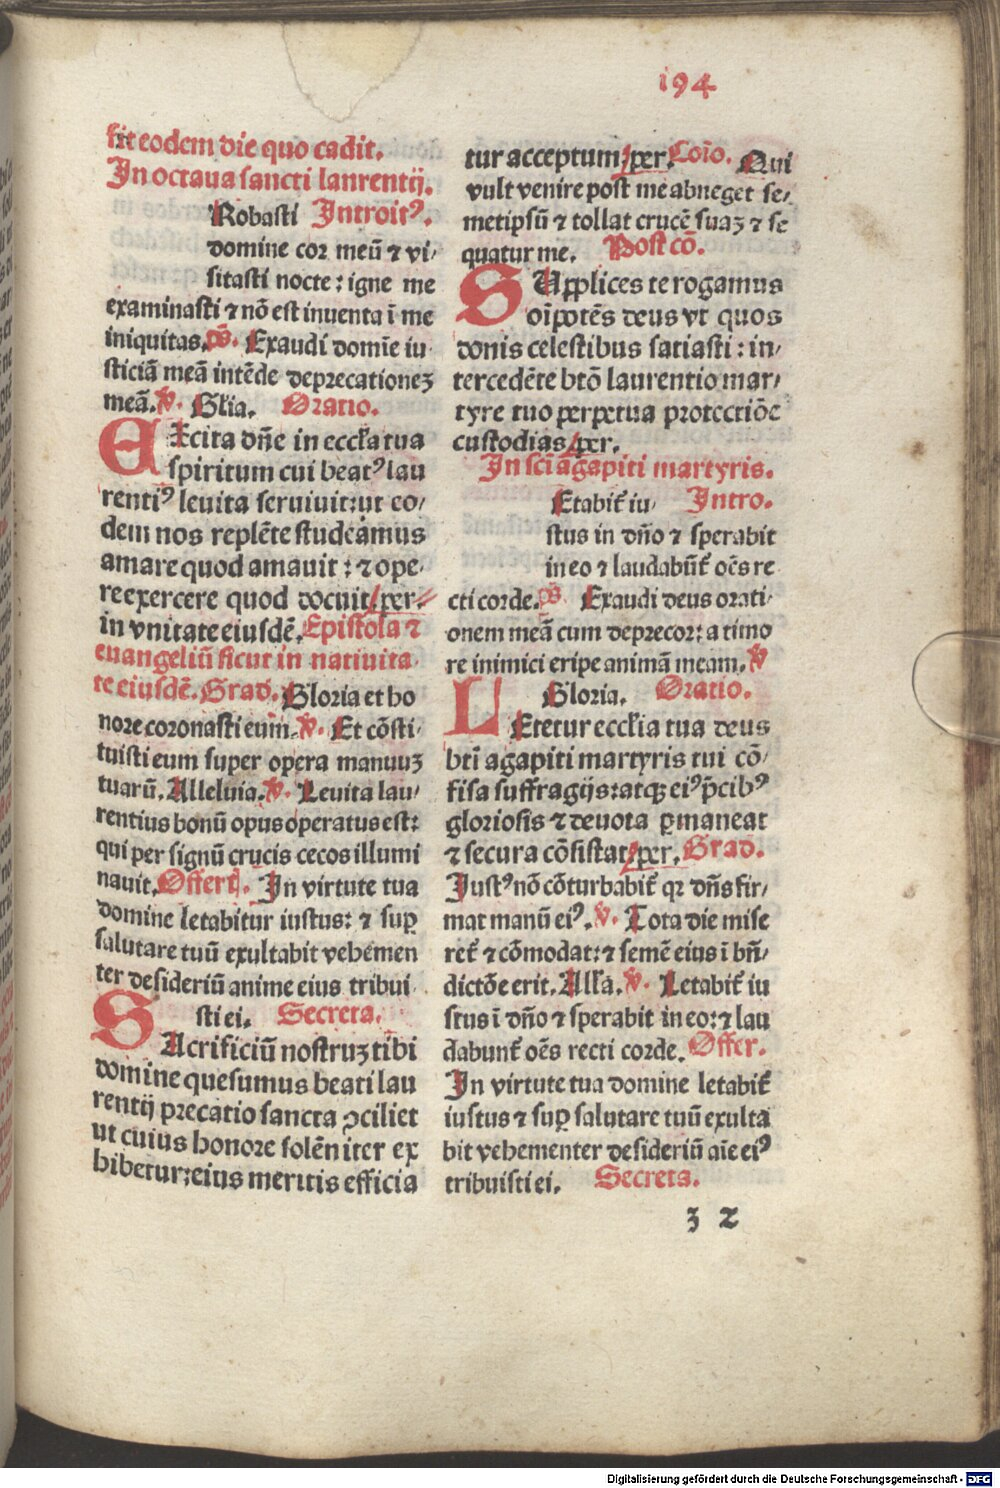 194
fit eodem die quo cadit.
In octaua sancti laurentij.
Robasti Introitꝰ.
domine cor meū ⁊ vi-
sitasti nocte: igne me
examinasti ⁊ nō est inuenta ī me
iniquitas. p̄s. Exaudi domīe iu
sticiā meā intēde deprecationeꝫ
meā. ℣. Glia. Oratio.
EXcita dn̄e in eccl'ia tua
spiritum cui beatꝰ lau
rentiꝰ leuita seruiuit: ut eo-
dem nos replēte studeamus
amare quod amauit: ⁊ ope-
re exercere quod docuit. ꝑer.
in vnitate eiusdē. Epistola ⁊
euangeliū sicut in natiuita
te eiusdē. Grad. Gloria et ho
nore coronasti eum. ℣. Et cōsti-
tuisti eum super opera manuuꝫ
tuarū. Alleluia. ℣. Leuita lau-
rentius bonū opus operatus est:
qui per signū crucis cecos illumi
nauit. Offert. In virtute tua
domine letabitur iustus: ⁊ suꝑ
salutare tuū exultabit vehemen
ter desideriū anime eius tribui
sti ei. Secreta.
SAcrificiū nostruꝫ tibi
domine quesumus beati lau
rentij precatio sancta ꝯciliet
ut cuius honore solēniter ex
hibetur: eius meritis efficia
tur acceptum. ꝑer. Coīo. Qui
vult venire post me abneget se-
metipsū ⁊ tollat crucē suaꝫ ⁊ se
quatur me. Post cō.
SUpplices te rogamus
oīpotēs deus vt quos
donis celestibus satiasti: in-
tercedēte btō laurentio mar-
tyre tuo perpetua protectiōe
custodias. ꝑer.
In sci agapiti martyris.
Etabit̄ iu- Intro.
stus in dn̄o ⁊ sperabit
in eo ⁊ laudabūt̄ oēs re
cti corde. p̄s. Exaudi deus orati-
onem meā cum deprecor: a timo
re inimici eripe animā meam. ℣
Gloria. Oratio.
LEtetur eccl'ia tua deus
bti agapiti martyris tui cō-
fisa suffragijs: atqꝫ eiꝰ p̄cibꝰ
gloriosis ⁊ deuota ꝑmaneat
⁊ secura cōsistat. ꝑer. Grad.
Justꝰ nō cōturbabit̄ qꝛ dn̄s fir-
mat manū eiꝰ. ℣. Tota die mise
ret̄ ⁊ cōmodat: ⁊ semē eius ī bn̄-
dictōe erit. Alla. ℣. Letabit̄ iu
stus ī dn̄o ⁊ sperabit in eo: ⁊ lau
dabunt̄ oēs recti corde. Offer.
In virtute tua domine letabit̄
iustus ⁊ suꝑ salutare tuū exulta
bit vehementer desideriū aīe eiꝰ
tribuisti ei. Secreta.
ꝫ 2
Digitalisierung gefördert durch die Deutsche Forschungsgemeinschaft - DFG